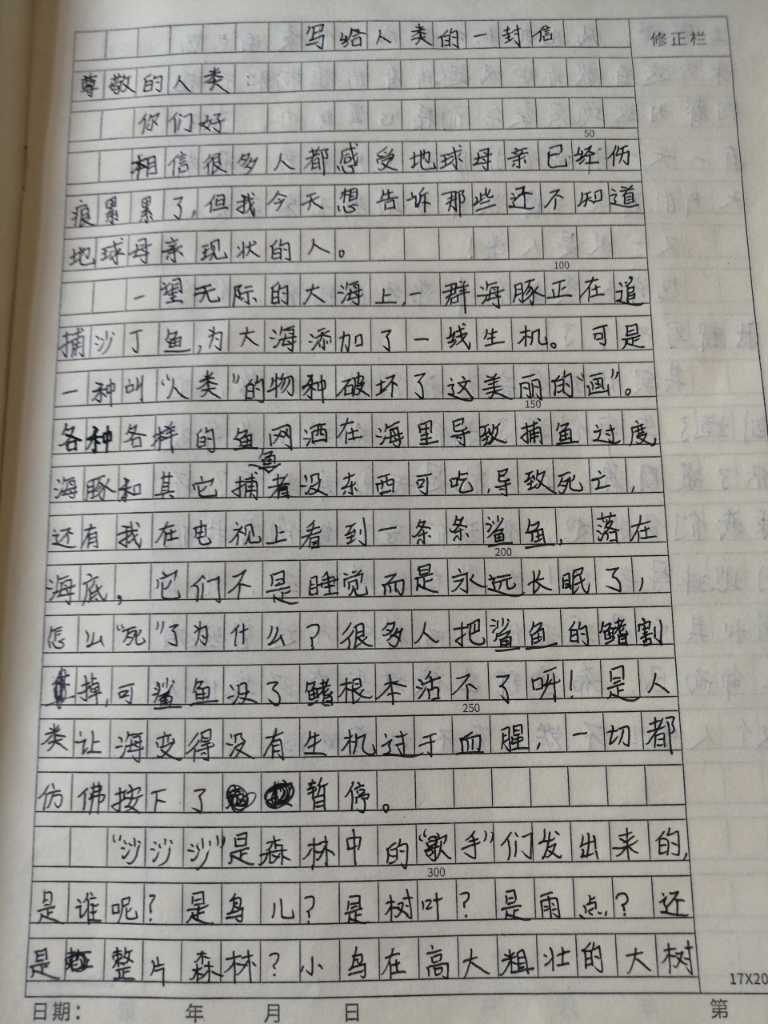 写给人类的一封信
修正栏
尊敬的人类:
你们好
50
相信很多人都感受地球母亲已经伤
痕累累了,但我今天想告诉那些还不知道
地球母亲现状的人。
100
一望无际的大海上,一群海豚正在追
捕沙丁鱼,为大海添加了一线生机。可是
一种叫“人类”的物种破坏了这美丽的“画”。
150
各种各样的鱼网洒在海里导致捕鱼过度
海豚和其它捕鱼者没东西可吃,导致死亡,
还有我在电视上看到一条条鲨鱼,落在
200
海底,它们不是睡觉而是永远长眠了,
怎么“死”了为什么?很多人把鲨鱼的鳍割
掉,可鲨鱼没了鳍根本活不了呀!是人
250
类让海变得没有生机过于血腥,一切都
仿佛按下了暂停。
“沙沙沙”是森林中的“歌手”们发出来的,
300
是谁呢?是鸟儿?是树叶?是雨点?还
是整片森林?小鸟在高大粗壮的大树
17X20
日期: 年 月 日 第